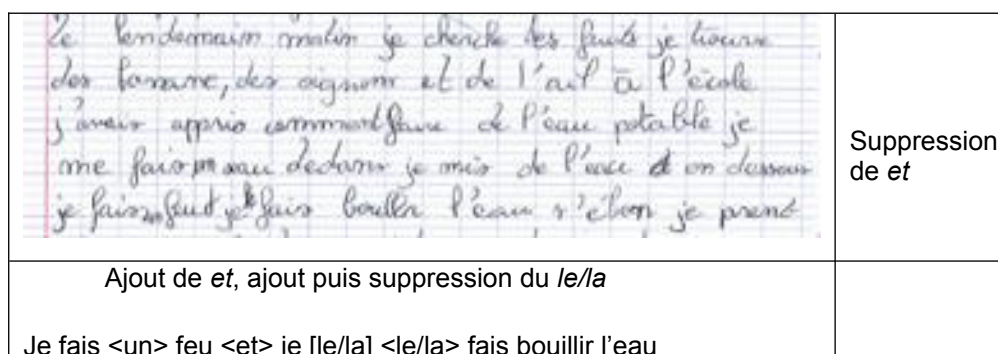 Le lendemain matin je cherche des fruits je trouve
des banane, des oignons et de l'ail à l'école
j'avais appris comment faire de l'eau potable je
me fais un seau dedans je mis de l'eau et en dessous
je fais un feu et je fais bouller l'eau s'ébon je prend
Suppression
de et
Ajout de et, ajout puis suppression du le/la
Je fais <un> feu <et> je [le/la] <le/la> fais bouillir l'eau